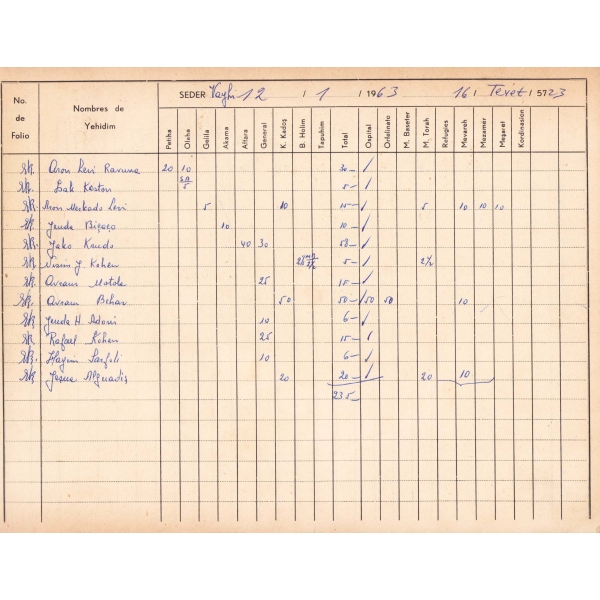 SEDER Vayhi 12 / 1 / 1963 16 / Tevet / 5723
No. de Folio
Nombres de Yehidim
Petiha
Olaha
Geila
Akama
Altara
General
K. Kados
B. Holim
Tapuhim
Total
Ospital
Orfelinato
M. Baseter
M. Torah
Refugies
Mevareh
Mezamer
Megaret
Kordinasion
Aron Levi Ravuna 20 10 30 —
Izak Keston 5 5 —
Aron Merkado Levi 5 10 15 — 5 10 10 10
Jeuda Bigaço 10 10 —
Jako Kendo 40 30 58 —
Nisim J. Kohen 5 — 2 1/2
Avram Motola 25 15 —
Avram Behar 50 50 — 50 50 10
Jeuda H. Adoni 10 6 —
Rafael Kohen 25 15 —
Hayim Sarfati 10 6 —
20 20 — 20 10
235 —